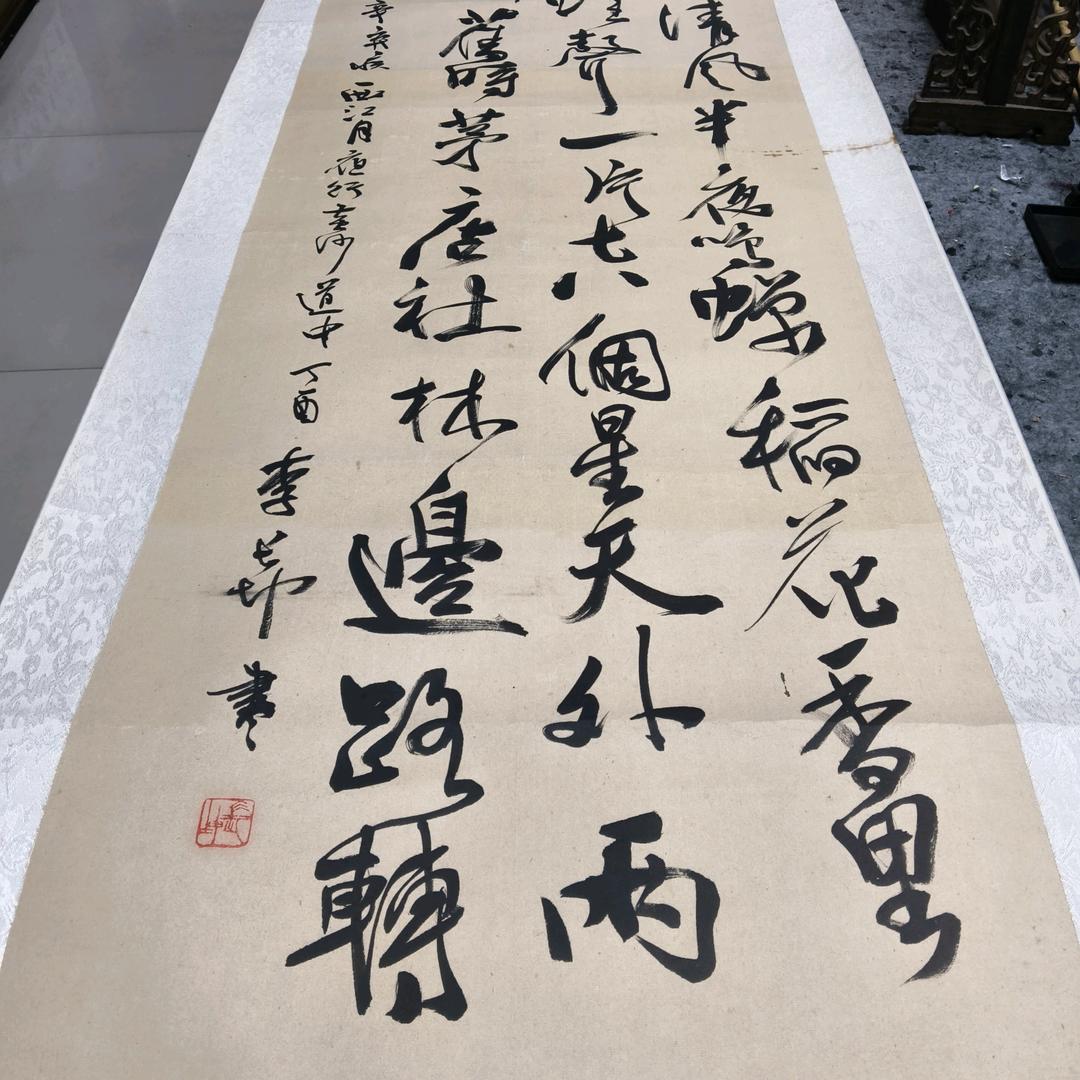 清風半夜鳴蟬稻花香里
蛙聲一片七八個星天外兩
舊時茅店社林邊路轉
辛棄疾西江月夜行黃沙道中丁酉李書